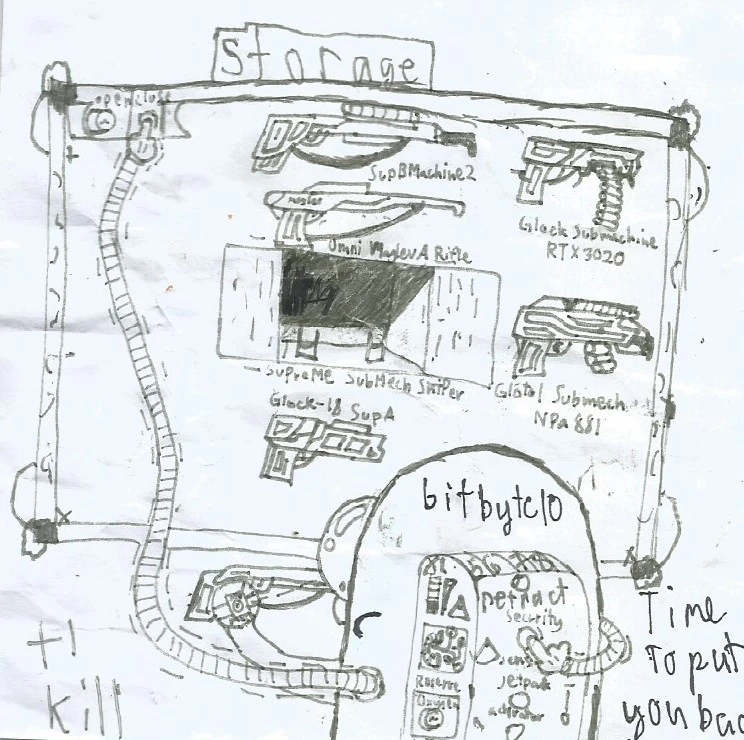 Storage
open close
SupBMachine2
master
Omni MaglevA Rifle
Glock Submachine
RTX3020
SupraME SubMech Sniper
Glotal Submech
NPa 881
Glock-18 SupA
bitbyte10
retract
Security
sense
Jetpak
Reserve
Oxygen
activator
Time
To put
you bac
kill